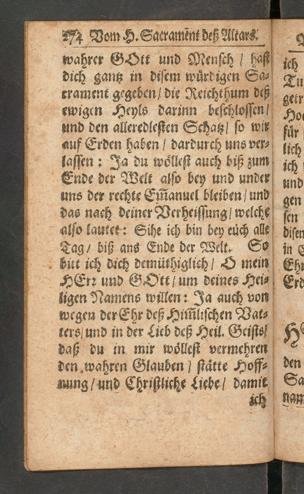 274 Vom H. Sacrament deß Altars.
wahrer GOtt und Mensch / hast
dich gantz in disem würdigen Sa-
crament gegeben / die Reichthum deß
ewigen Heyls darinn beschlossen /
und den alleredlesten Schatz / so wir
auf Erden haben / dardurch uns ver-
lassen : Ja du wöllest auch biß zum
Ende der Welt also bey und under
uns der rechte Em̃anuel bleiben / und
das nach deiner Verheissung / welche
also lautet : Sihe ich bin bey euch alle
Tag / biß ans Ende der Welt. So
bitt ich dich demüthiglich / O mein
HErr und GOtt / um deines Hei-
ligen Namens willen : Ja auch von
wegen der Ehr deß Him̃lischen Vat-
ters / und in der Lieb deß Heil. Geists /
daß du in mir wöllest vermehren
den wahren Glauben / stätte Hoff-
nung / und Christliche Liebe / damit
ich
ich
Tu
geir
Hoc
für
lich
ich
und
gen
sen
disem
in
Ehr
Erd
den
Sa
nam